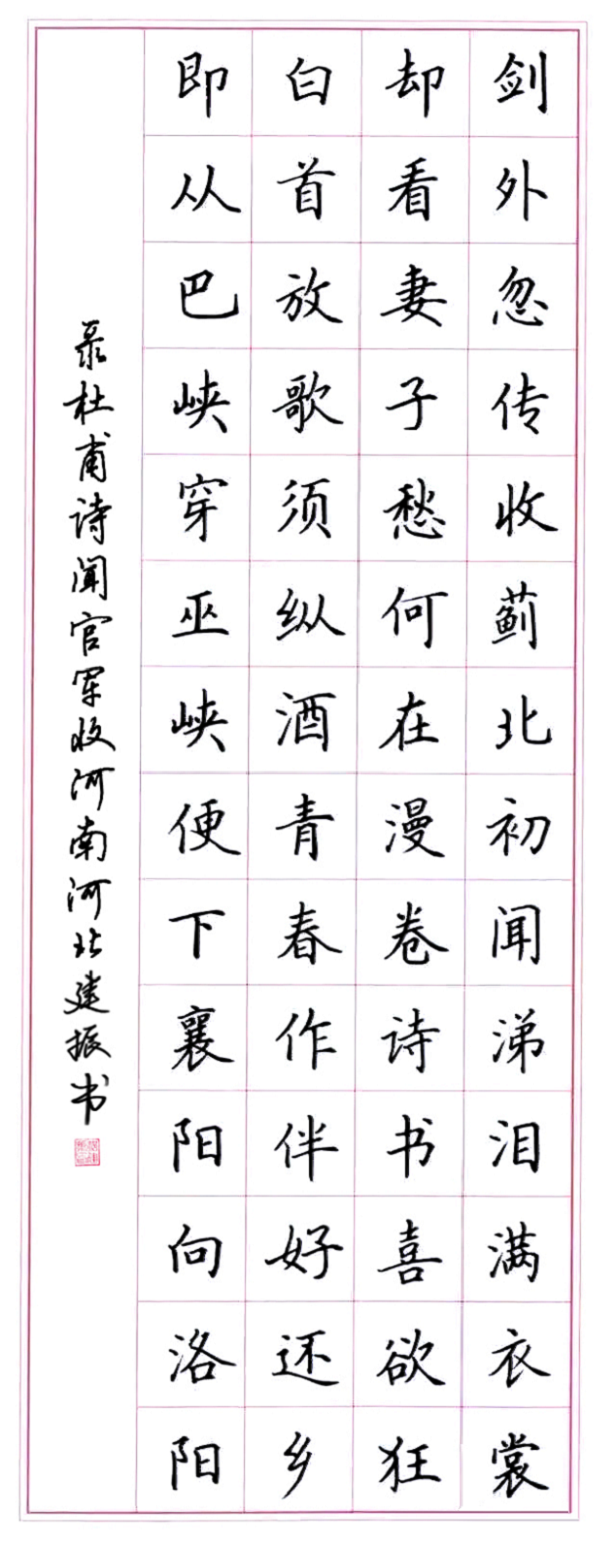 剑外忽传收蓟北初闻涕泪满衣裳
却看妻子愁何在漫卷诗书喜欲狂
白首放歌须纵酒青春作伴好还乡
即从巴峡穿巫峡便下襄阳向洛阳
录杜甫诗闻官军收河南河北建振书